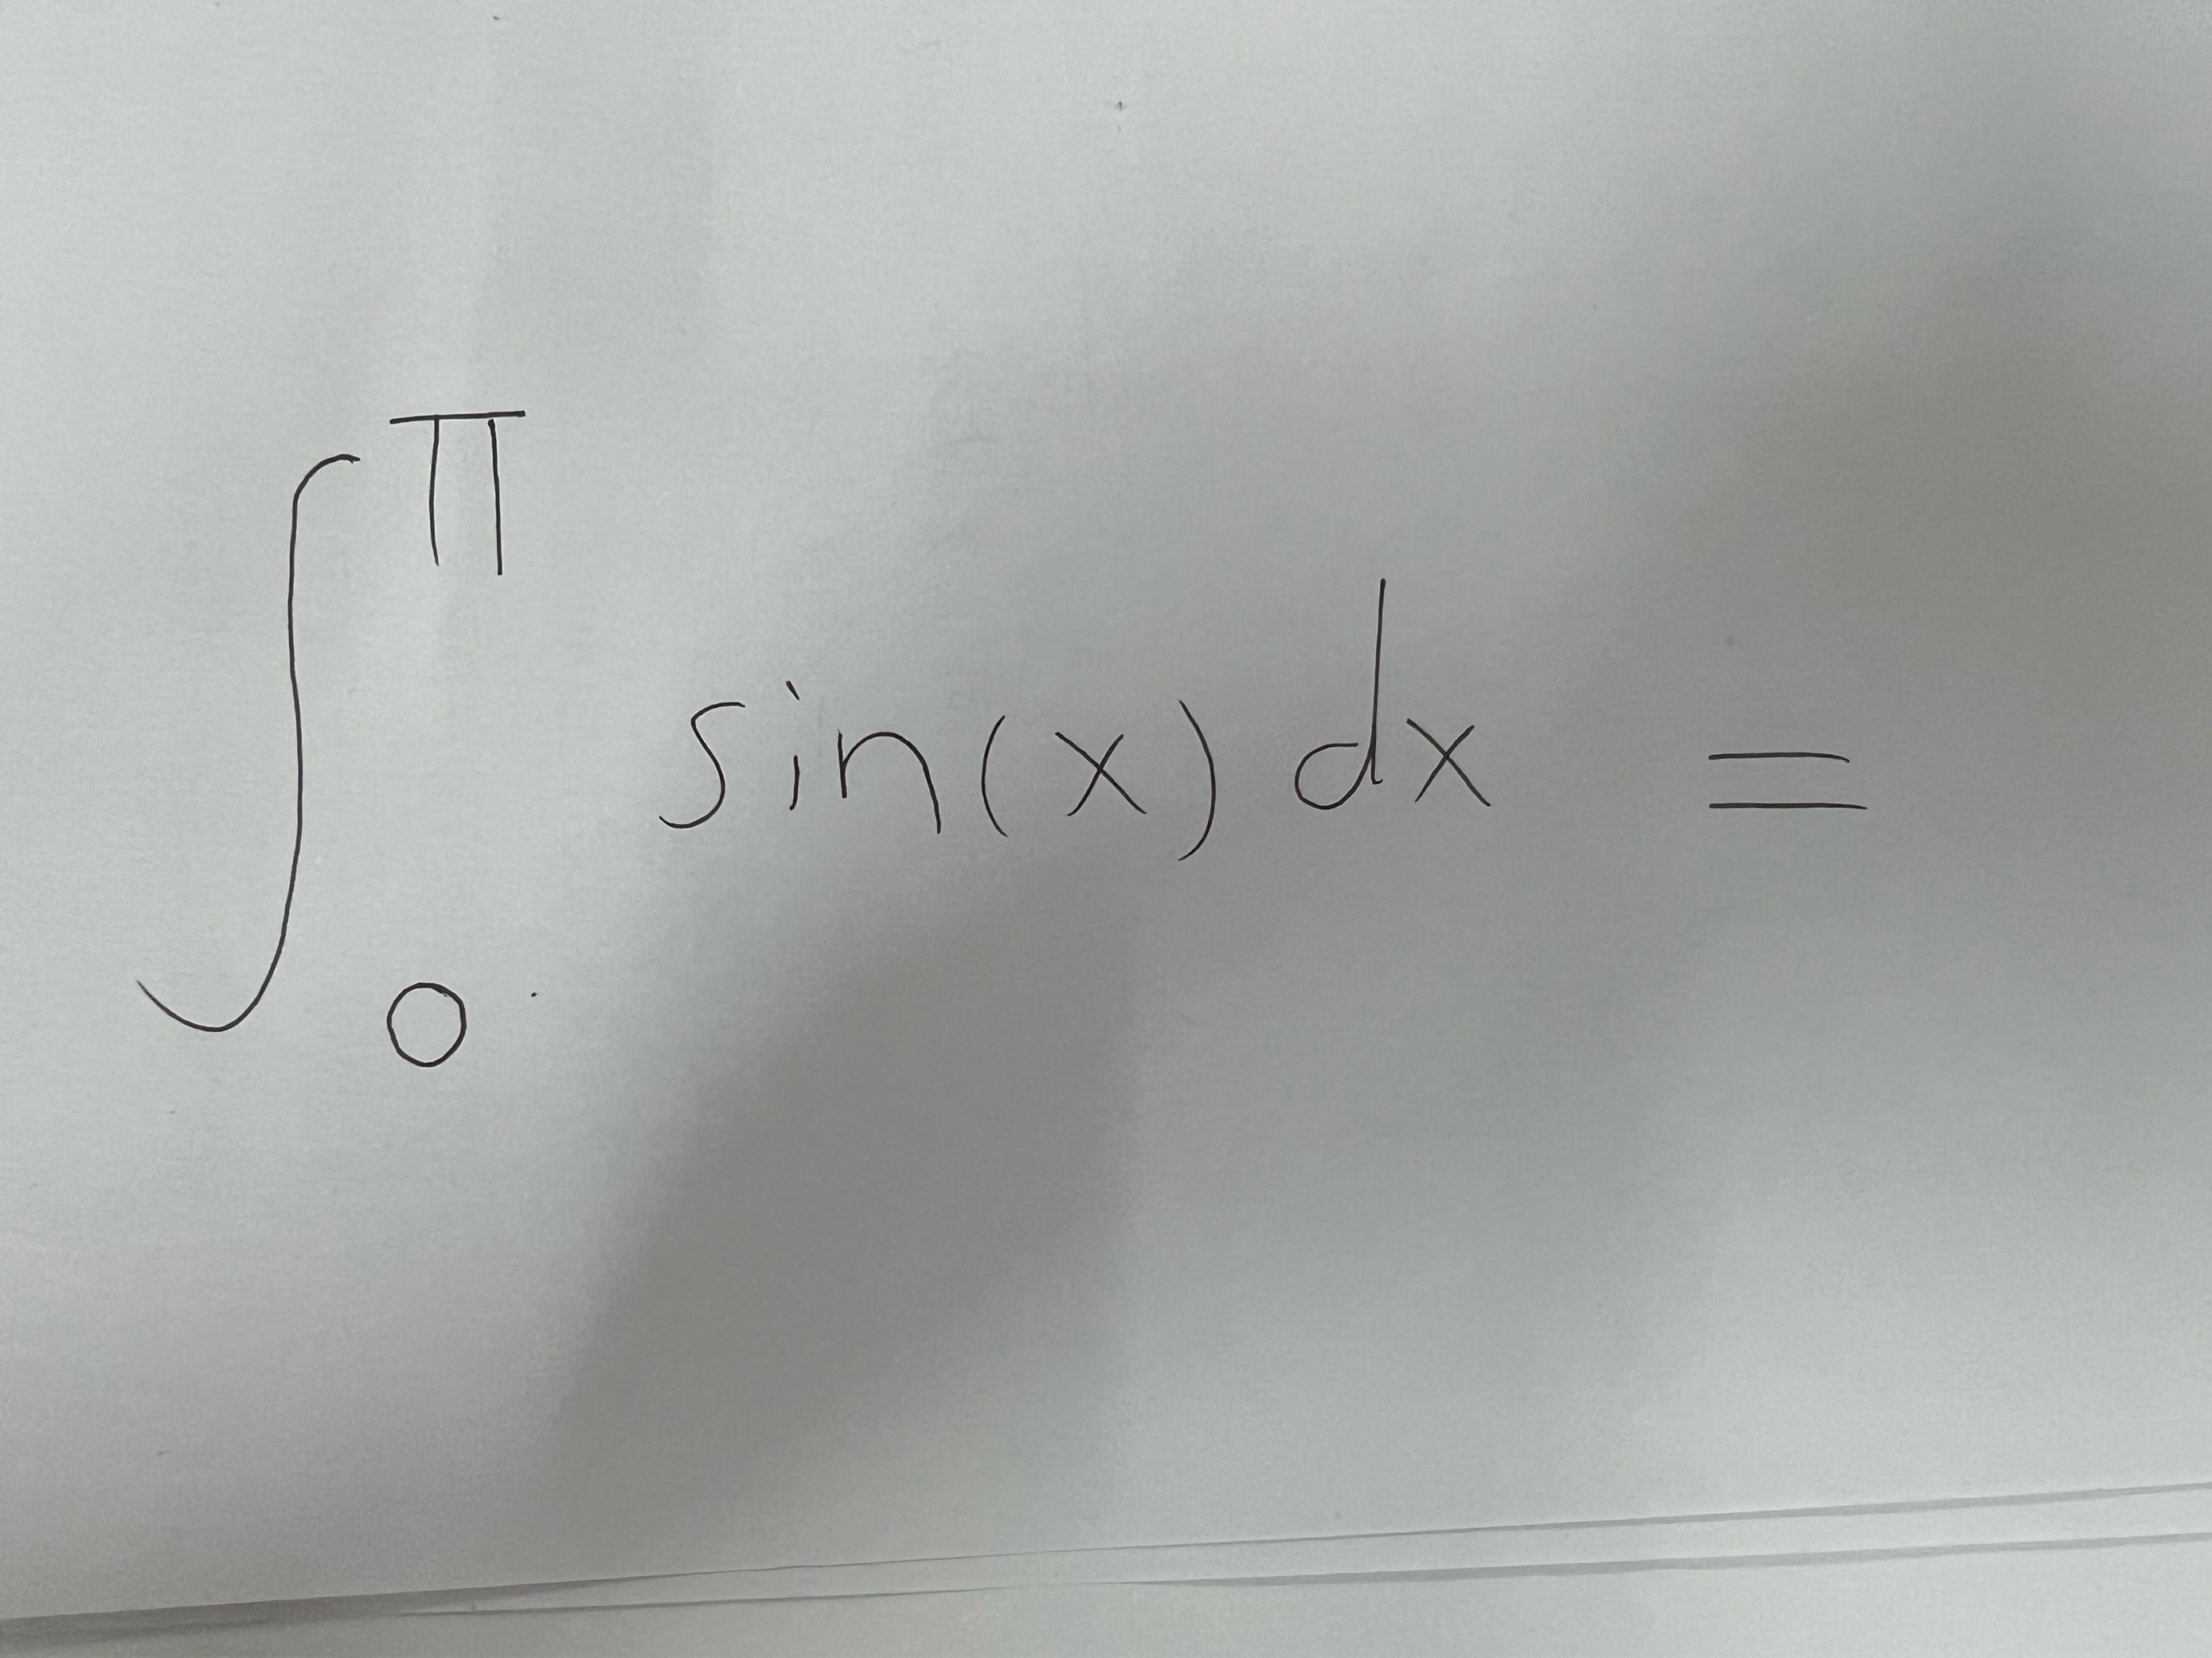 ∫₀^π sin(x) dx =